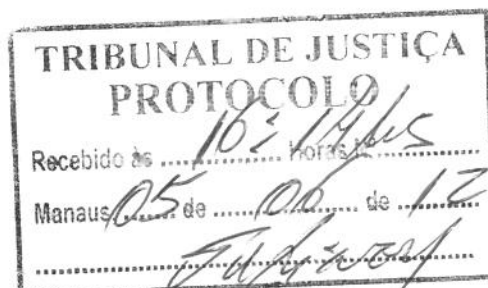 TRIBUNAL DE JUSTIÇA
PROTOCOLO
Recebido às 16: 14hs Horas
Manaus 05 de 06 de 12